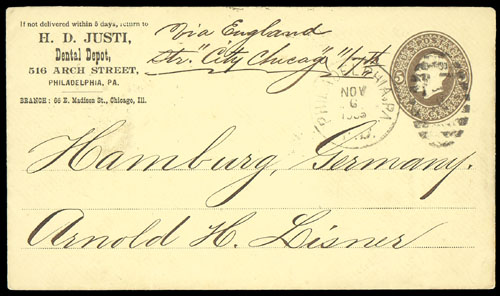 If not delivered within 5 days, return to
H. D. JUSTI,
Dental Depot,
516 ARCH STREET,
PHILADELPHIA, PA.
BRANCH: 66 E. Madison St., Chicago, Ill.
Via England
Str. "City Chicago" 11/7th
PHILADELPHIA, PA.
NOV
6
U.S. POSTAGE
Hamburg, Germany.
Arnold H. Lisner